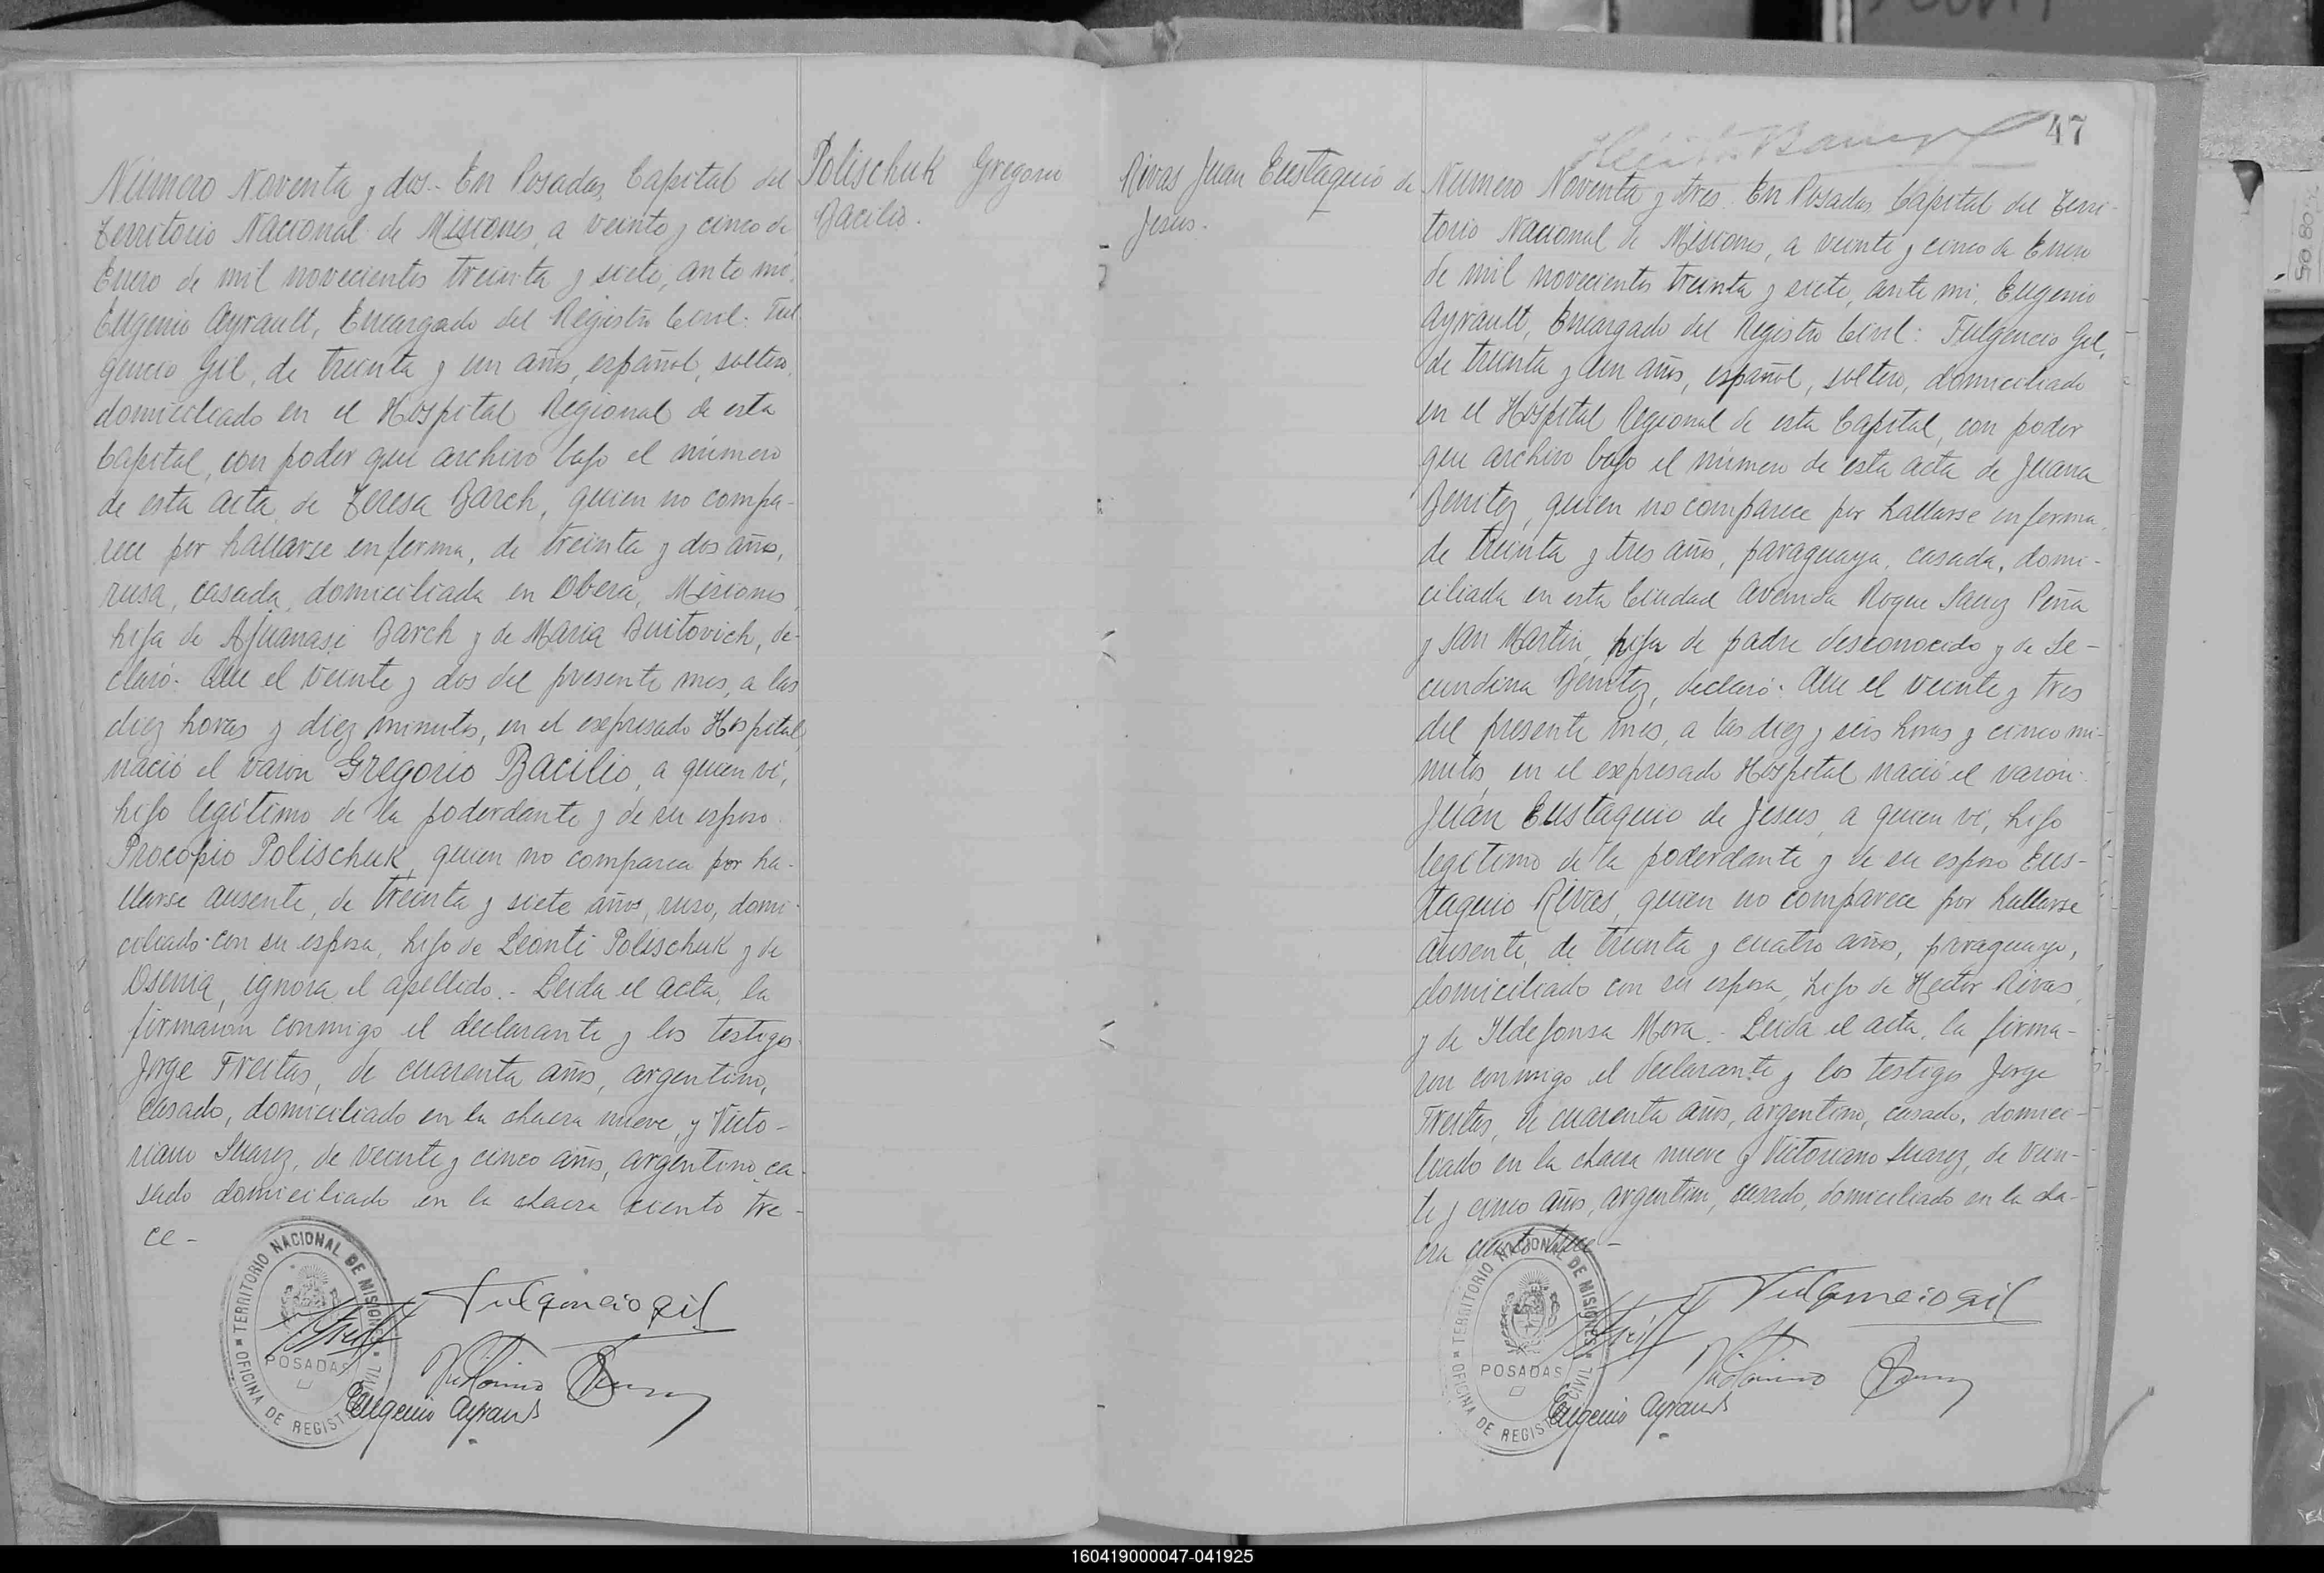 Número Noventa y dos.- En Posadas, Capital del
Territorio Nacional de Misiones, a veinte y cinco de
Enero de mil novecientos treinta y siete, ante mi,
Eugenio Ayrault, Encargado del Registro Civil: Ful-
gencio Gil, de treinta y un años, español, soltero,
domiciliado en el Hospital Regional de esta
Capital, con poder que archivo bajo el número
de esta acta de Teresa Barch, quien no compa-
rece por hallarse enferma, de treinta y dos años,
rusa, casada, domiciliada en Oberá, Misiones,
hija de Afuanasi Barch y de Maria Buitovich, de-
claró: Que el veinte y dos del presente mes, a las
diez horas y diez minutos, en el expresado Hospital
nació el varon Gregorio Bacilio, a quien vi,
hijo legítimo de la poderdante y de su esposo
Procopio Polischuk, quien no comparece por ha-
llarse ausente, de treinta y siete años, ruso, domi-
ciliado con su esposa, hijo de Leonti Polischuk y de
Osenia, ignora el apellido.- Leida el acta, la
firmaron conmigo el declarante y los testigos
Jorge Freitas, de cuarenta años, argentino,
casado, domiciliado en la chacra nueve, y Victo-
riano Suarez, de veinte y cinco años, argentino, ca-
sado domiciliado en la chacra ciento tre-
ce -
Polischuk Gregorio
Bacilio.
TERRITORIO NACIONAL DE MISIONES
POSADAS
OFICINA DE REGISTRO CIVIL
Fulgencio Gil
Victoriano Suarez
Eugenio Ayrault
47
Rivas Juan Eustaquio de
Jesus.
Número Noventa y tres. En Posadas Capital del Terri-
torio Nacional de Misiones, a veinte y cinco de Enero
de mil novecientos treinta y siete, ante mi, Eugenio
Ayrault, Encargado del Registro Civil: Fulgencio Gil,
de treinta y un años, español, soltero, domiciliado
en el Hospital Regional de esta Capital, con poder
que archivo bajo el número de esta acta de Juana
Benitez, quien no comparece por hallarse enferma,
de treinta y tres años, paraguaya, casada, domi-
ciliada en esta Ciudad Avenida Roque Saenz Peña
y San Martin, hija de padre desconocido y de Se-
cundina Benitez, declaró: Que el veinte y tres
del presente mes, a las diez y seis horas y cinco mi-
nutos, en el expresado Hospital nació el varon:
Juan Eustaquio de Jesus, a quien vi, hijo
legítimo de la poderdante y de su esposo Eus-
taquio Rivas, quien no comparece por hallarse
ausente, de treinta y cuatro años, paraguayo,
domiciliado con su esposa, hijo de Hector Rivas,
y de Ildefonsa Mora.- Leida el acta, la firma-
ron conmigo el declarante y los testigos Jorge
Freitas, de cuarenta años, argentino, casado, domici-
liado en la chacra nueve y Victoriano Suarez, de vein-
te y cinco años, argentino, casado, domiciliado en la cha-
cra ciento trece -
TERRITORIO NACIONAL DE MISIONES
POSADAS
OFICINA DE REGISTRO CIVIL
Fulgencio Gil
Victoriano Suarez
Eugenio Ayrault
160419000047-041925